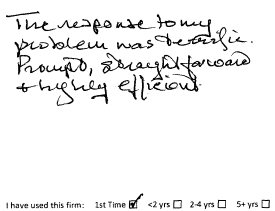 The response to my
problem was terrific.
Prompt, straightforward
+ highly efficient.
I have used this firm: 1st Time ☑ <2 yrs ☐ 2-4 yrs ☐ 5+ yrs ☐